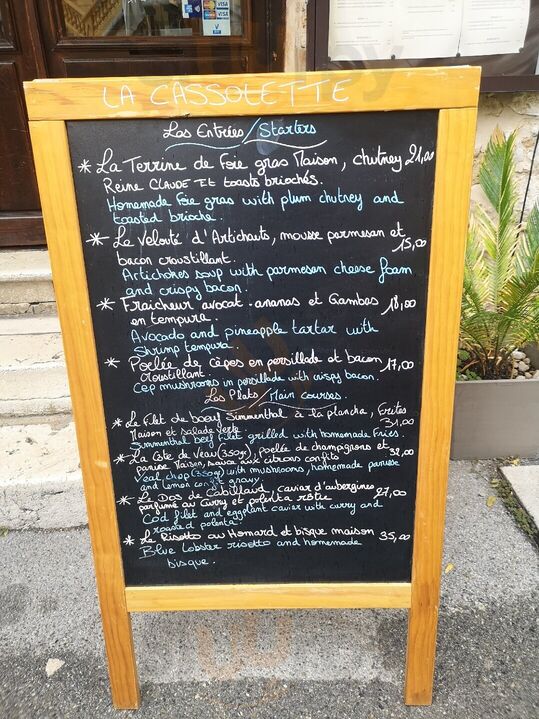 VISA
VISA
LA CASSOLETTE
Les Entrées / Starters
* La Terrine de Foie gras Maison, chutney 21,00
Reine CLAUDE et toasts briochés.
Homemade Foie gras with plum chutney and
toasted brioche.
* Le Velouté d'Artichauts, mousse parmesan et
bacon croustillant. 15,00
Artichokes soup with parmesan cheese foam
and crispy bacon.
* Fraicheur avocat-ananas et Gambas 18,00
en tempura.
Avocado and pineapple tartar with
shrimp tempura.
* Poelée de cèpes en persillade et bacon 17,00
croustillant.
Cep mushrooms in persillade with crispy bacon.
Les Plats / Main courses.
* Le Filet de boeuf Simmenthal à la plancha, Frites
Maison et salade verte 31,00
Simmenthal beef filet grilled with homemade Fries.
* La Côte de Veau (350gr), poelée de champignons et
panisse Maison, sauce aux citrons confits 32,00
Veal chop (350gr) with mushrooms, homemade panisse
and lemon confit gravy.
* Le Dos de Cabillaud, caviar d'aubergines
parfumé au Curry et polenta rôtie 27,00
Cod filet and eggplant caviar with curry and
roasted polenta.
* Le Risotto au Homard et bisque maison 35,00
Blue lobster risotto and homemade
bisque.